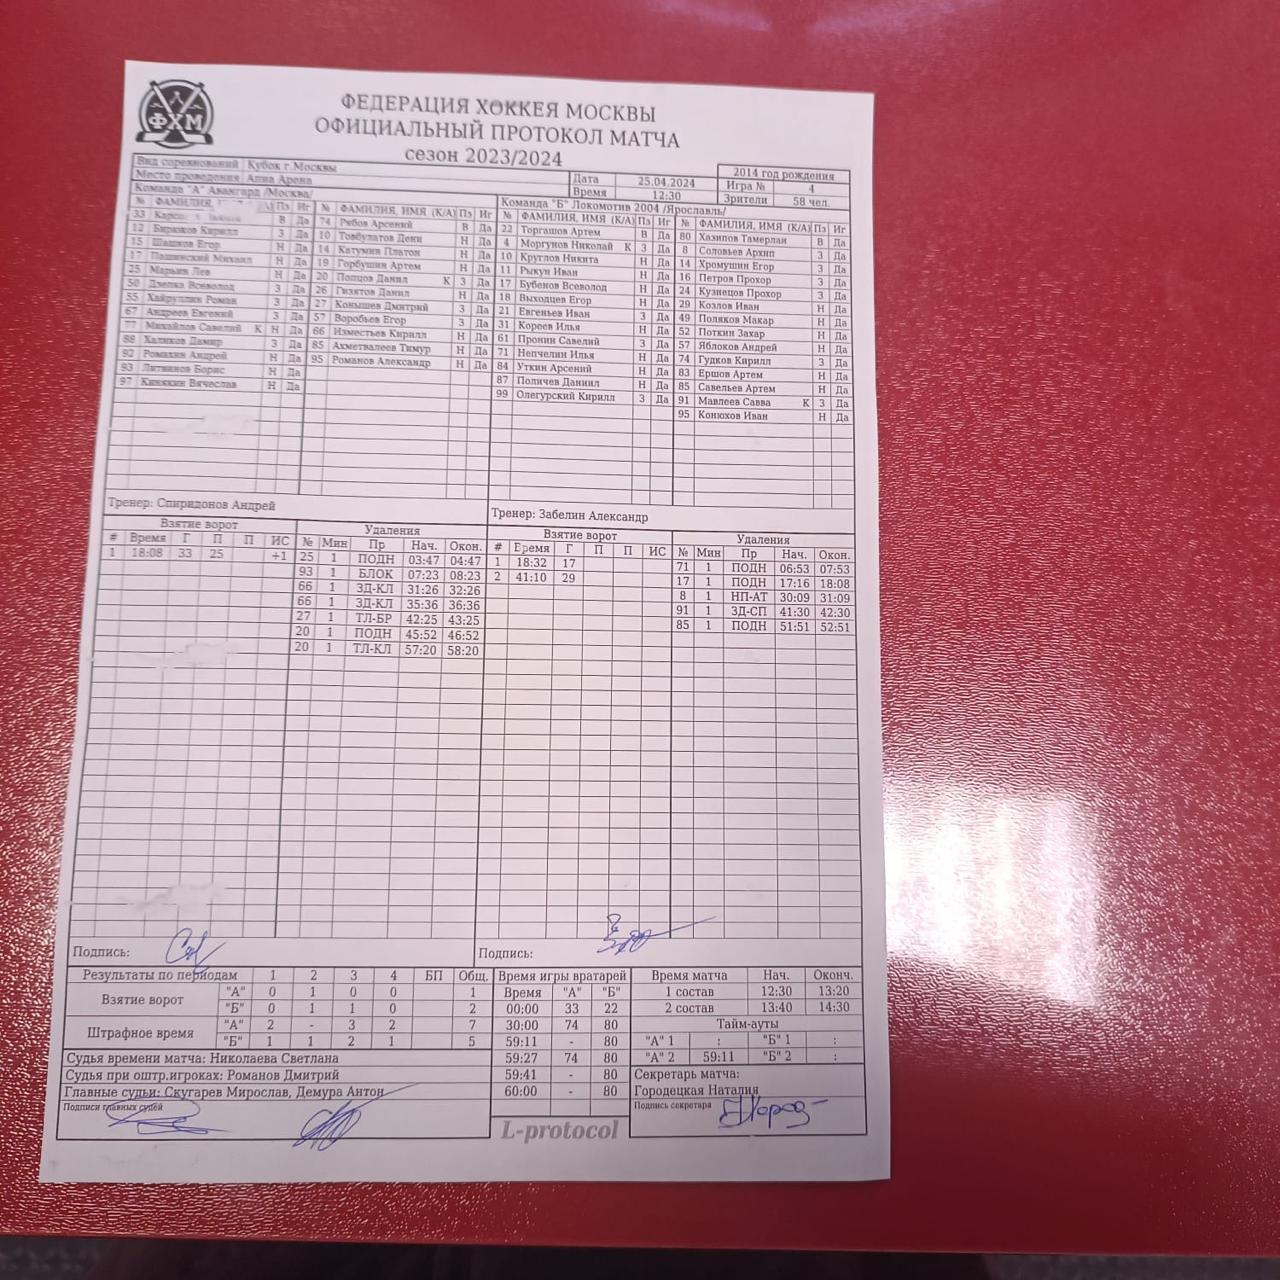 ФХМ
ФЕДЕРАЦИЯ ХОККЕЯ МОСКВЫ
ОФИЦИАЛЬНЫЙ ПРОТОКОЛ МАТЧА
сезон 2023/2024
Вид соревнований Кубок г.Москвы
2014 год рождения
Место проведения Апиа Арена Дата 25.04.2024 Игра № 4
Время 12:30 Зрители 58 чел.
Команда "А" Авангард /Москва/
Команда "Б" Локомотив 2004 /Ярославль/
№ ФАМИЛИЯ, Пз Иг № ФАМИЛИЯ, ИМЯ (К/А) Пз Иг
33 В Да 74 Рябов Арсений В Да
12 Бирюков Кирилл З Да 10 Товбулатов Дени Н Да
15 Шашков Егор Н Да 14 Катумин Платон Н Да
17 Пашинский Михаил Н Да 19 Горбушин Артем Н Да
25 Марьин Лев Н Да 20 Попцов Данил К З Да
50 Дзепка Всеволод З Да 26 Гизятов Данил Н Да
55 Хайруллин Роман З Да 27 Конышев Дмитрий З Да
67 Андреев Евгений З Да 57 Воробьев Егор З Да
77 Михайлов Савелий К Н Да 66 Изместьев Кирилл Н Да
88 Халиков Дамир З Да 85 Ахметвалеев Тимур Н Да
92 Ромахин Андрей Н Да 95 Романов Александр Н Да
93 Литвинов Борис Н Да
97 Кинякин Вячеслав Н Да
№ ФАМИЛИЯ, ИМЯ (К/А) Пз Иг № ФАМИЛИЯ, ИМЯ (К/А) Пз Иг
22 Торгашов Артем В Да 80 Хазипов Тамерлан В Да
4 Моргунов Николай К З Да 8 Соловьев Архип З Да
10 Круглов Никита Н Да 14 Хромушин Егор З Да
11 Рыкун Иван Н Да 16 Петров Прохор З Да
17 Бубенов Всеволод Н Да 24 Кузнецов Прохор З Да
18 Выходцев Егор Н Да 29 Козлов Иван Н Да
21 Евгеньев Иван З Да 49 Поляков Макар Н Да
31 Кореев Илья Н Да 52 Поткин Захар Н Да
61 Пронин Савелий З Да 57 Яблоков Андрей Н Да
71 Непчелин Илья Н Да 74 Гудков Кирилл З Да
84 Уткин Арсений Н Да 83 Ершов Артем Н Да
87 Поличев Даниил Н Да 85 Савельев Артем Н Да
99 Олегурский Кирилл З Да 91 Мавлеев Савва К З Да
95 Конюхов Иван Н Да
Тренер: Спиридонов Андрей
Тренер: Забелин Александр
Взятие ворот Удаления
# Время Г П П ИС № Мин Пр Нач. Окон.
1 18:08 33 25 +1 25 1 ПОДН 03:47 04:47
93 1 БЛОК 07:23 08:23
66 1 ЗД-КЛ 31:26 32:26
66 1 ЗД-КЛ 35:36 36:36
27 1 ТЛ-БР 42:25 43:25
20 1 ПОДН 45:52 46:52
20 1 ТЛ-КЛ 57:20 58:20
Взятие ворот Удаления
# Время Г П П ИС № Мин Пр Нач. Окон.
1 18:32 17 71 1 ПОДН 06:53 07:53
2 41:10 29 17 1 ПОДН 17:16 18:08
8 1 НП-АТ 30:09 31:09
91 1 ЗД-СП 41:30 42:30
85 1 ПОДН 51:51 52:51
Подпись:
Подпись:
Результаты по периодам 1 2 3 4 БП Общ.
Взятие ворот "А" 0 1 0 0 1
"Б" 0 1 1 0 2
Штрафное время "А" 2 - 3 2 7
"Б" 1 1 2 1 5
Судья времени матча: Николаева Светлана
Судья при оштр.игроках: Романов Дмитрий
Главные судьи: Скугарев Мирослав, Демура Антон
Подписи главных судей
Время игры вратарей
Время "А" "Б"
00:00 33 22
30:00 74 80
59:11 - 80
59:27 74 80
59:41 - 80
60:00 - 80
L-protocol
Время матча Нач. Оконч.
1 состав 12:30 13:20
2 состав 13:40 14:30
Тайм-ауты
"А" 1 : "Б" 1 :
"А" 2 59:11 "Б" 2 :
Секретарь матча:
Городецкая Наталия
Подпись секретаря